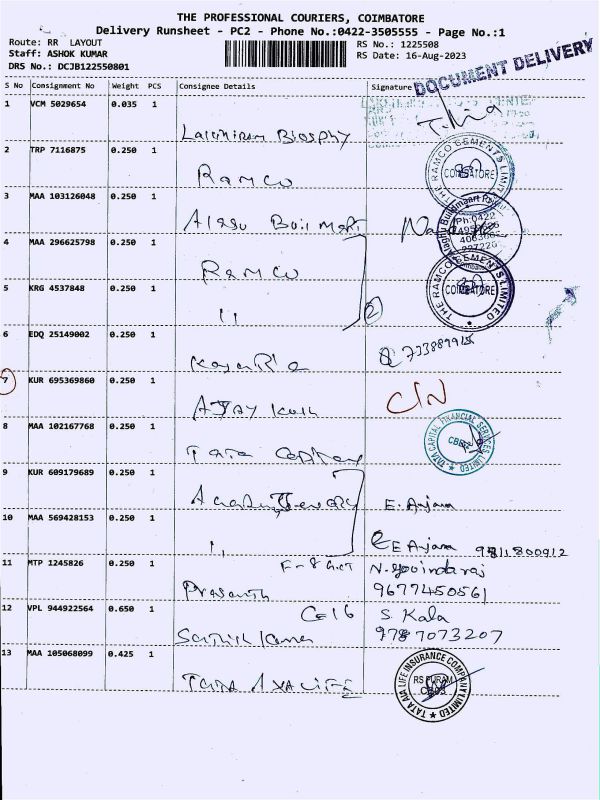 THE PROFESSIONAL COURIERS, COIMBATORE
Delivery Runsheet - PC2 - Phone No.:0422-3505555 - Page No.:1
Route: RR LAYOUT
Staff: ASHOK KUMAR
DRS No.: DCJB122550801
RS No.: 1225508
RS Date: 16-Aug-2023
DOCUMENT DELIVERY
S No Consignment No Weight PCS Consignee Details Signature
1 VCM 5029654 0.035 1
2 TRP 7116875 0.250 1
Ramco
THE RAMCO CEMENTS LIMITED
COIMBATORE
3 MAA 103126048 0.250 1
4 MAA 296625798 0.250 1
Ramco
5 KRG 4537848 0.250 1
11
2
THE RAMCO CEMENTS LIMITED
COIMBATORE
6 EDQ 25149002 0.250 1
7 KUR 695369860 0.250 1
C/N
8 MAA 102167768 0.250 1
Tata Capital
TATA CAPITAL FINANCIAL SERVICES LIMITED
9 KUR 609179689 0.250 1
E. Anjana
10 MAA 569428153 0.250 1
E Anjana 9811800912
11 MTP 1245826 0.250 1
Prasanth
N. Govindaraj
9677450561
12 VPL 944922564 0.650 1
Sathish Kumar
S. Kala
9787073207
13 MAA 105068099 0.425 1
TATA AXA LIFE
TATA AIA LIFE INSURANCE COMPANY LIMITED
RS PURAM